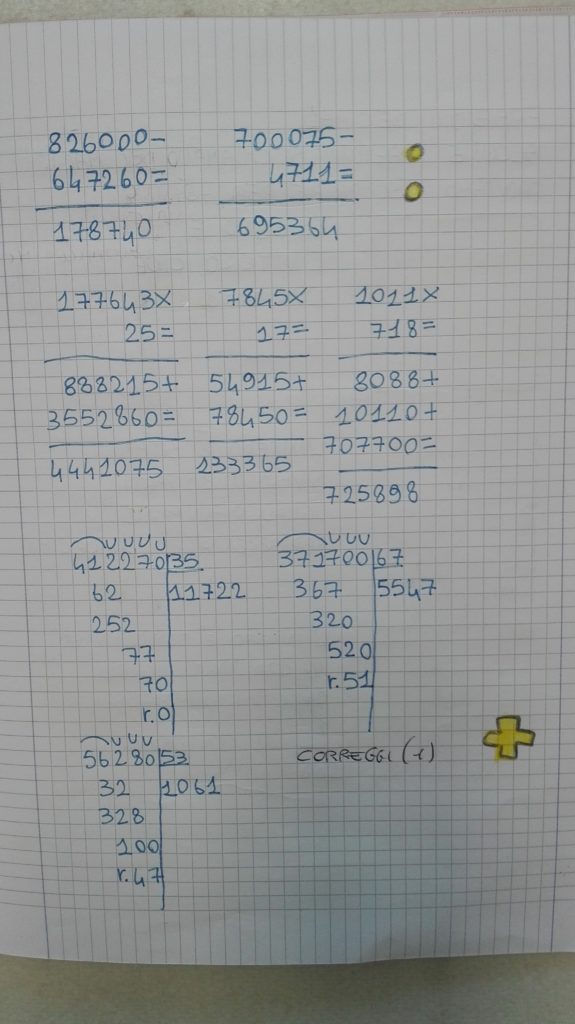 826000- 700075-
647260= 4711=
178740 695364
177643x 7845x 1011x
25= 17= 718=
888215+ 54915+ 8088+
3552860= 78450= 10110+
4441075 133365 707700=
725898
412270 35 371700 67
62 11722 367 5547
252 320
77 520
70 r.51
r.0
56280 53 CORREGGI (1)
32 1061
328
100
r.47